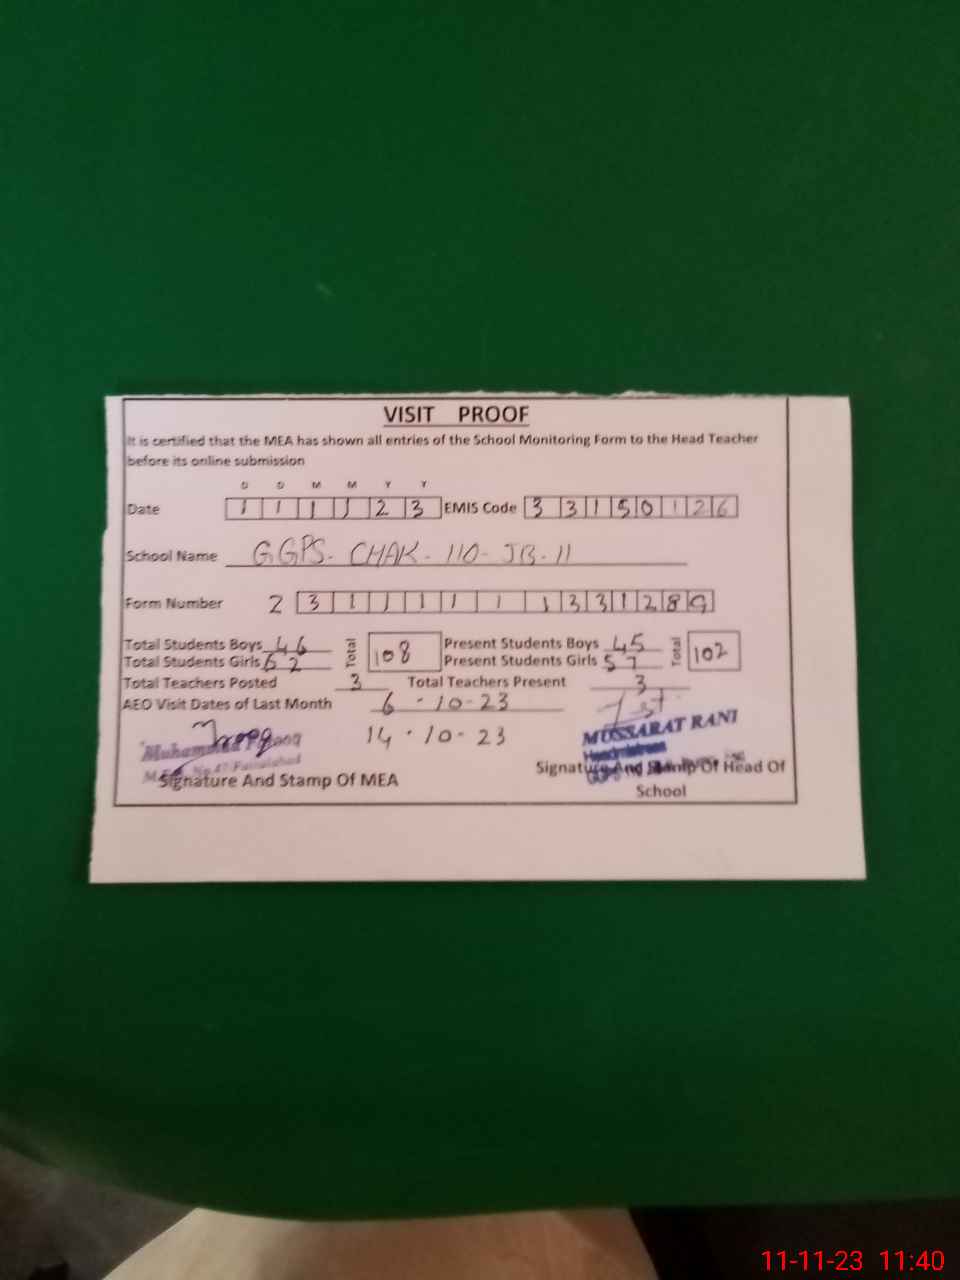 VISIT PROOF
It is certified that the MEA has shown all entries of the School Monitoring Form to the Head Teacher
before its online submission
D D M M Y Y
Date 1 1 1 1 2 3 EMIS Code 3 3 1 5 0 1 2 6
School Name GGPS- CHAK- 110- JB- 11
Form Number 2 3 1 1 1 1 1 1 3 3 1 2 8 9
Total Students Boys 46 Total 108 Present Students Boys 45 Total 102
Total Students Girls 62 Present Students Girls 57
Total Teachers Posted 3 Total Teachers Present 3
AEO Visit Dates of Last Month 6 - 10 - 23
14 - 10 - 23
Muhammad Farooq
MUSSARAT RANI
Headmistress
Signature And Stamp Of MEA
Signature And Stamp Of Head Of
School
11-11-23 11:40